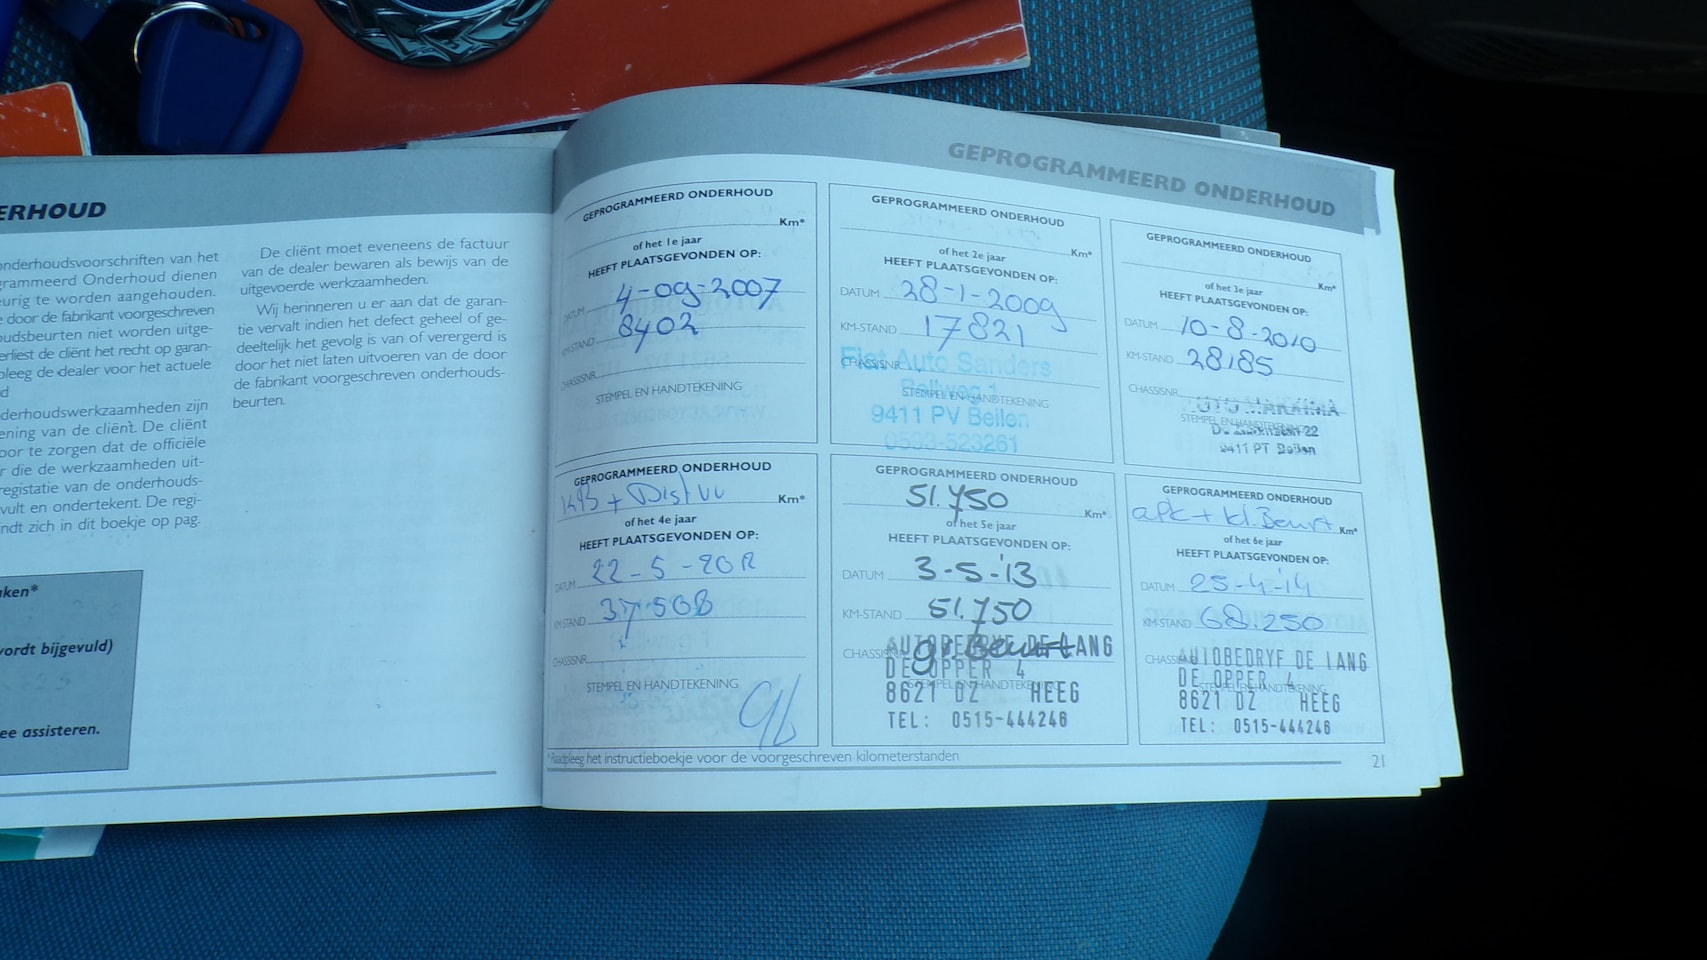 ERHOUD
onderhoudsvoorschriften van het
grammeerd Onderhoud dienen
eurig te worden aangehouden.
door de fabrikant voorgeschreven
oudsbeurten niet worden uitge-
erliest de cliënt het recht op garan-
pleeg de dealer voor het actuele
d
derhoudswerkzaamheden zijn
ening van de cliënt. De cliënt
oor te zorgen dat de officiële
r die de werkzaamheden uit-
registatie van de onderhouds-
vult en ondertekent. De regi-
ndt zich in dit boekje op pag.
De cliënt moet eveneens de factuur
van de dealer bewaren als bewijs van de
uitgevoerde werkzaamheden.
Wij herinneren u er aan dat de garan-
tie vervalt indien het defect geheel of ge-
deeltelijk het gevolg is van of verergerd is
door het niet laten uitvoeren van de door
de fabrikant voorgeschreven onderhouds-
beurten.
ken*
wordt bijgevuld)
ee assisteren.
GEPROGRAMMEERD ONDERHOUD
GEPROGRAMMEERD ONDERHOUD
Km*
of het 1e jaar
HEEFT PLAATSGEVONDEN OP:
DATUM 4-09-2007
KM-STAND 8402
CHASSISNR.
STEMPEL EN HANDTEKENING
GEPROGRAMMEERD ONDERHOUD
Km*
of het 2e jaar
HEEFT PLAATSGEVONDEN OP:
DATUM 28-1-2009
KM-STAND 17821
CHASSISNR.
Fiat Auto Sanders
STEMPEL EN HANDTEKENING
9411 PV Beilen
0593-523261
GEPROGRAMMEERD ONDERHOUD
Km*
of het 3e jaar
HEEFT PLAATSGEVONDEN OP:
DATUM 10-8-2010
KM-STAND 28185
CHASSISNR.
STEMPEL EN HANDTEKENING
9411 PT Beilen
GEPROGRAMMEERD ONDERHOUD
+ Km*
of het 4e jaar
HEEFT PLAATSGEVONDEN OP:
DATUM 22-5-2012
KM-STAND 37508
CHASSISNR.
STEMPEL EN HANDTEKENING
GEPROGRAMMEERD ONDERHOUD
51.750 Km*
of het 5e jaar
HEEFT PLAATSGEVONDEN OP:
DATUM 3-5-'13
KM-STAND 51.750
CHASSISNR.
gr. Beurt
AUTOBEDRYF DE LANG
DE OPPER 4
STEMPEL EN HANDTEKENING
8621 DZ HEEG
TEL: 0515-444246
GEPROGRAMMEERD ONDERHOUD
apk + kl. Beurt Km*
of het 6e jaar
HEEFT PLAATSGEVONDEN OP:
DATUM 25-4-'14
KM-STAND 68.250
CHASSISNR.
AUTOBEDRYF DE LANG
DE OPPER 4
STEMPEL EN HANDTEKENING
8621 DZ HEEG
TEL: 0515-444246
* Raadpleeg het instructieboekje voor de voorgeschreven kilometerstanden
21